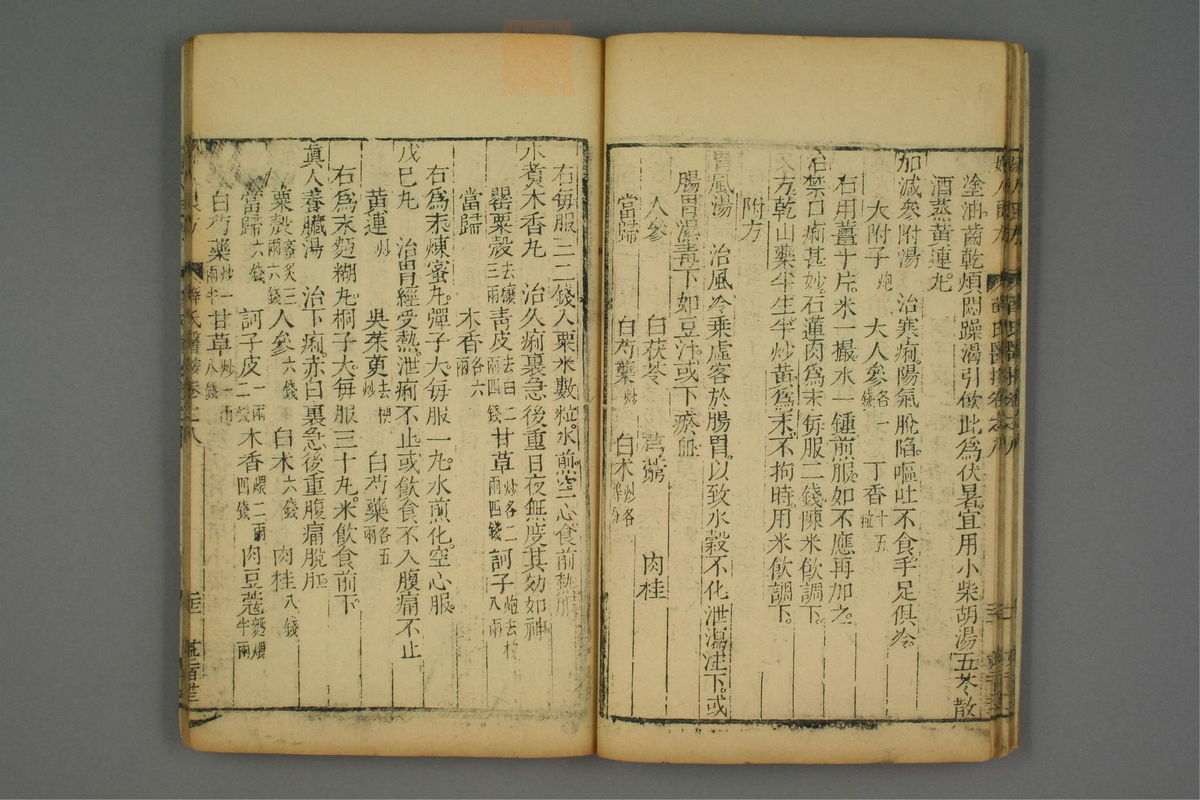 塗油齒乾煩悶躁渴引飲此爲伏暑宜用小柴胡湯五苓散
酒蒸黃連丸
加減參附湯 治寒痢陽氣脫陷嘔吐不食手足俱冷
大附子炮 大人參各一錢 丁香十五粒
右用薑十片米一撮水一鍾煎服如不應再加之
治禁口痢甚妙石蓮肉爲末每服二錢陳米飲調下
又方乾山藥半生半炒黃爲末不拘時用米飲調下
附方
胃風湯 治風冷乘虛客於腸胃以致水穀不化泄瀉注下或
腸胃濕毒下如豆汁或下瘀血
人參 白茯苓 芎藭 肉桂
當歸 白芍藥炒 白朮炒各等分
右每服二三錢入粟米數粒水煎空心食前熱服
水煑木香丸 治久痢裏急後重日夜無度其効如神
罌粟殼去穰三兩 靑皮去白二兩四錢 甘草炒各二兩四錢 訶子炮去核八兩
當歸 木香各六兩
右爲末煉蜜丸彈子大每服一丸水煎化空心服
戊巳丸 治胃經受熱泄痢不止或飲食不入腹痛不止
黃連炒 吳茱萸去梗炒 白芍藥各五兩
右爲末麵糊丸桐子大每服三十丸米飲食前下
眞人養臟湯 治下痢赤白裏急後重腹痛脫肛
粟殼蜜炙三兩六錢 人參六錢 白朮六錢 肉桂八錢
當歸六錢 訶子皮一兩二錢 木香煨二兩四錢 肉豆蔻麵煨半兩
白芍藥炒一兩半 甘草炒一兩八錢